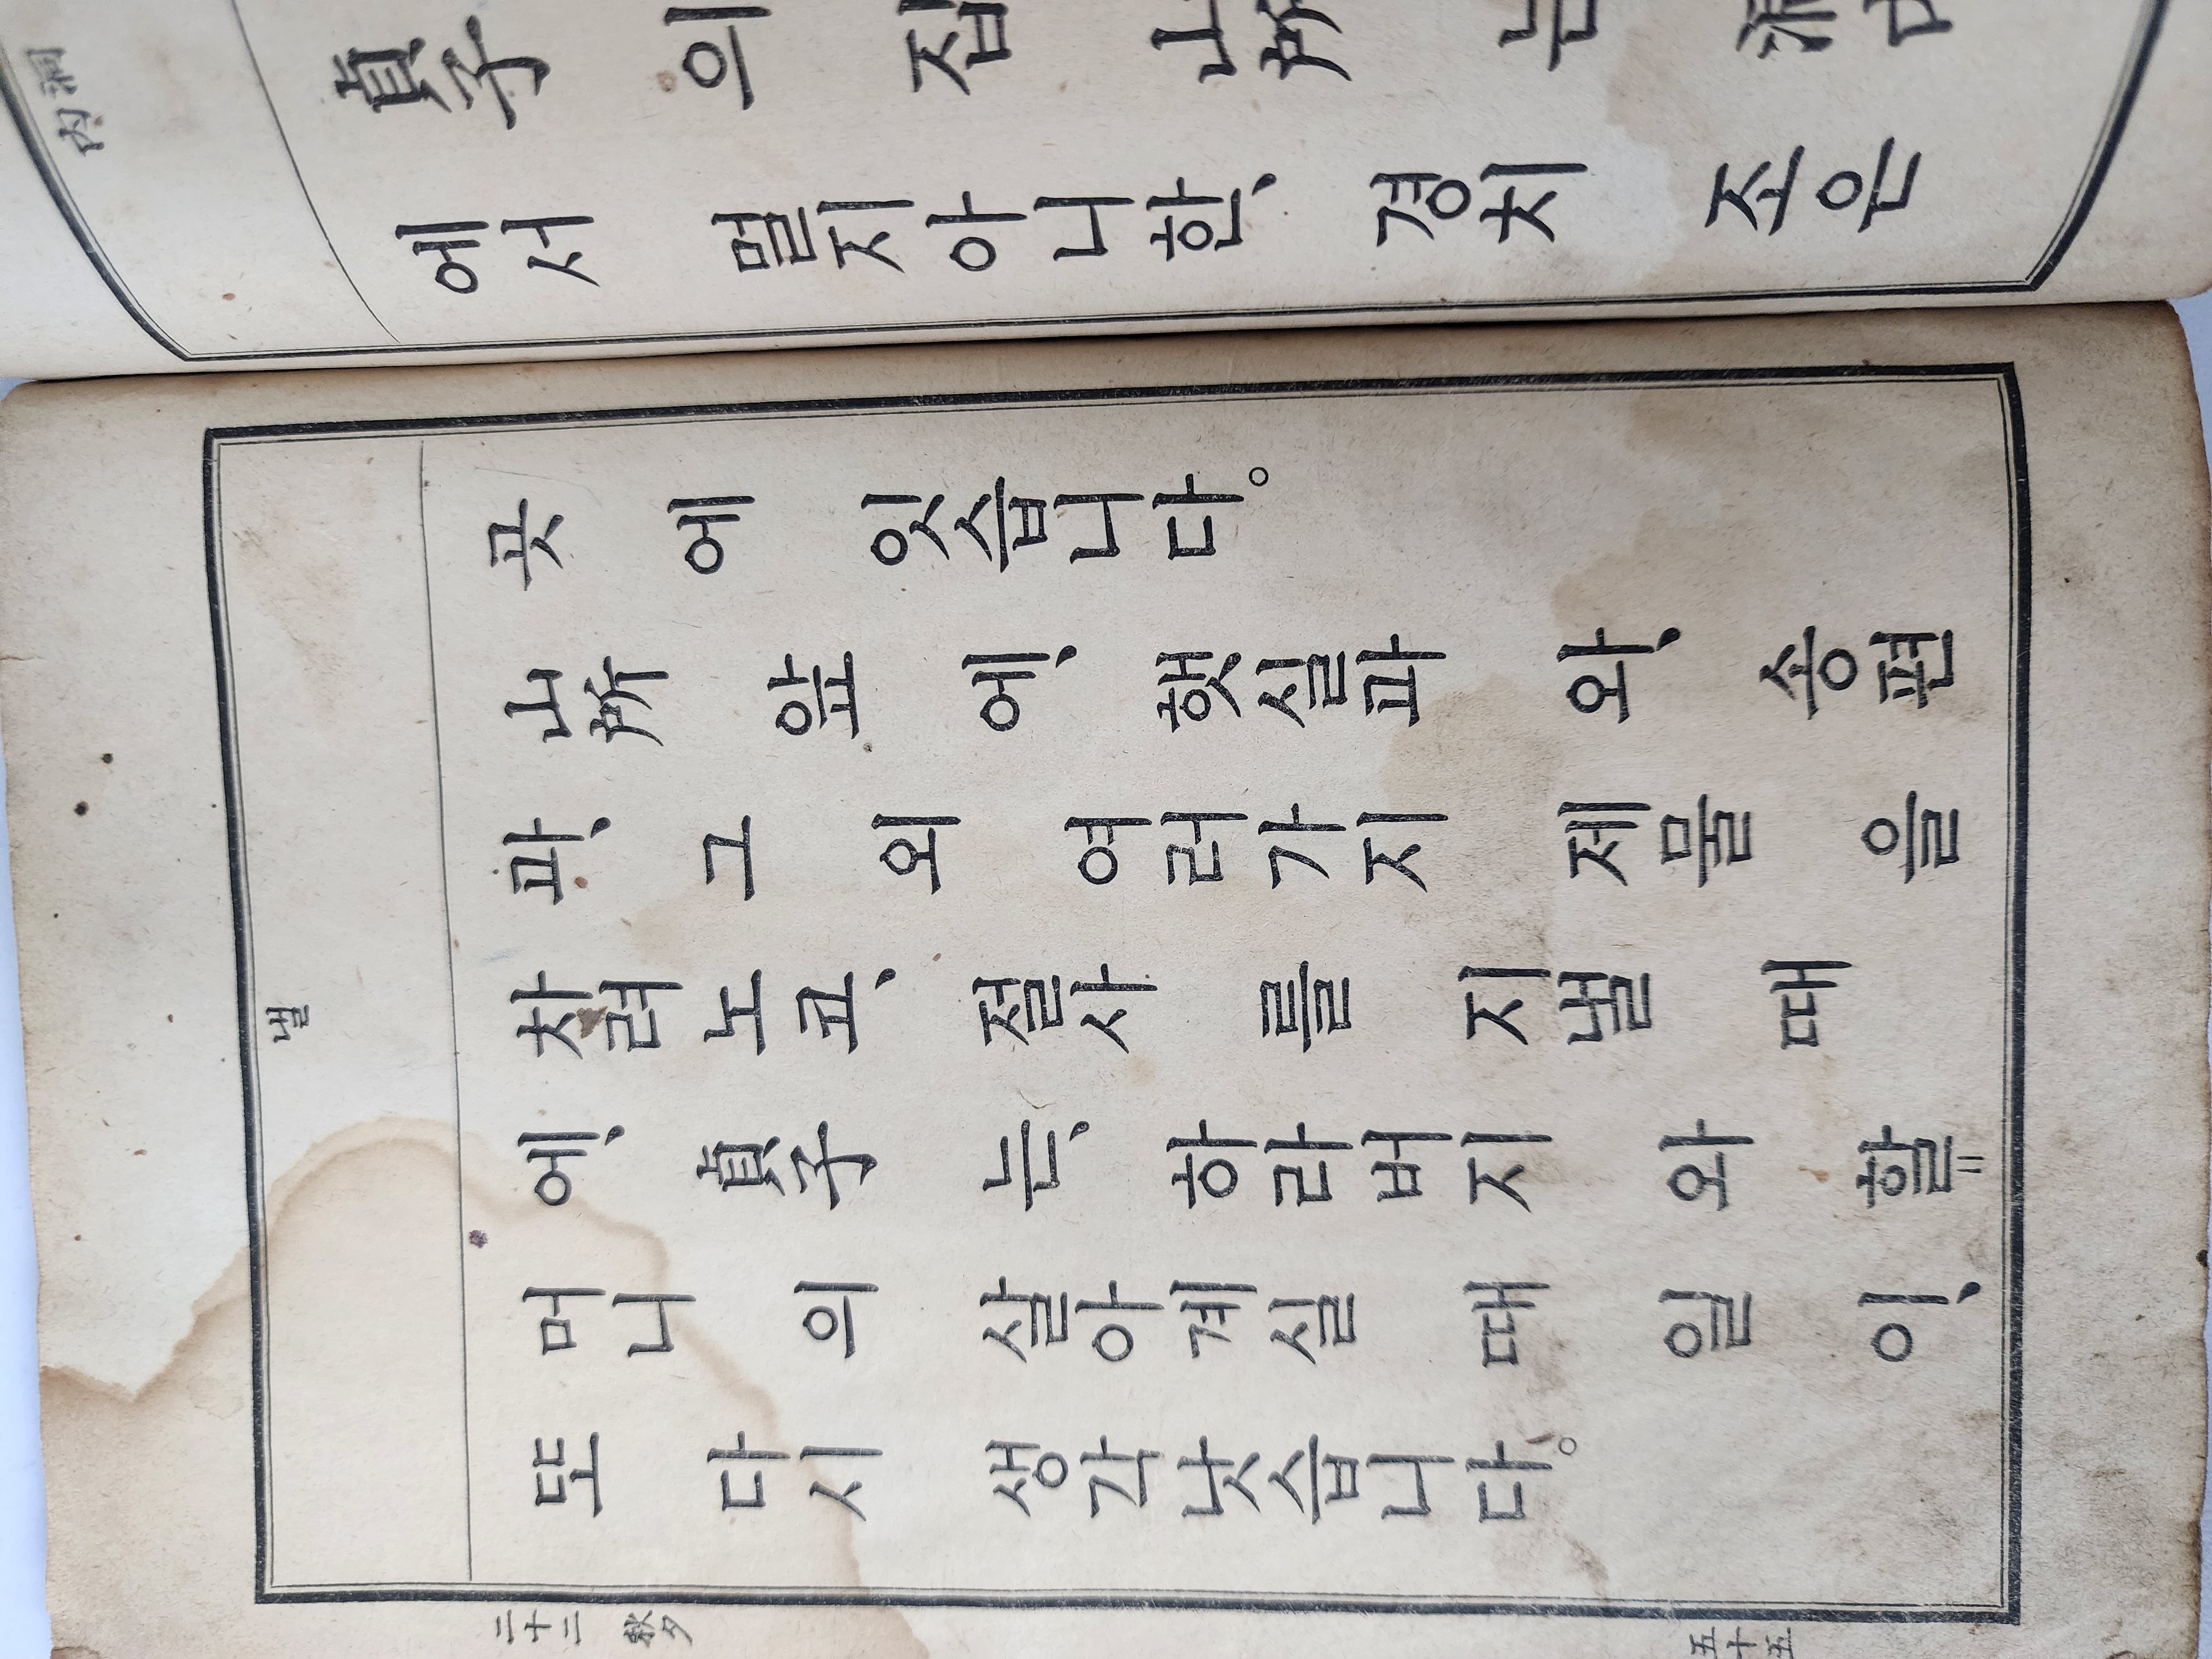 洞內
貞子 의 집 山所 는 洞內
에서 멀지아니한、 경치 조은
낼
곳 에 잇습니다。
山所 앞 에、 햇실과 와、 송편
과、 그 외 여러가지 제물 을
차려노코、 절사 를 지낼 때
에、 貞子 는、 하라버지 와 할=
머니 의 살아계실 때 일 이、
또 다시 생각낫습니다。
二十二 秋夕 五十五